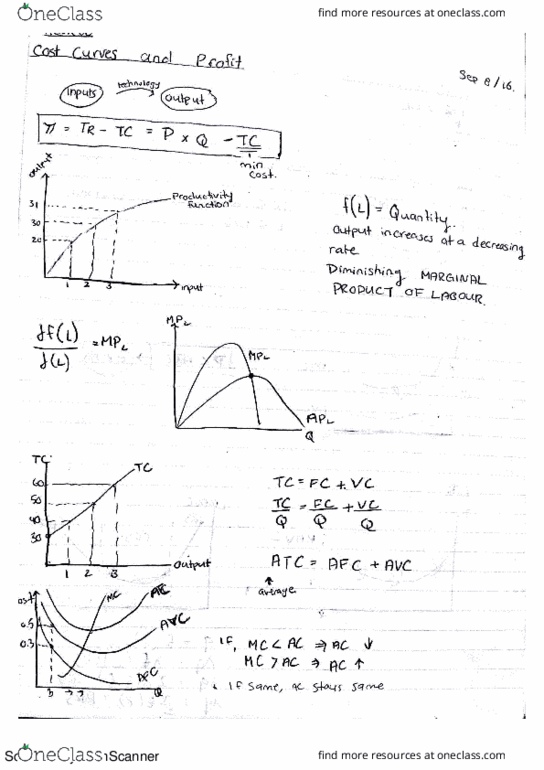 OneClass
find more resources at oneclass.com
Cost Curves and Profit
Sep 8/16.
inputs technology output
π = TR - TC = P × Q - TC
min cost.
output
Productivity function
31
30
20
1 2 3 input
f(L) = Quantity.
Output increases at a decreasing
rate
Diminishing MARGINAL
PRODUCT OF LABOUR.
df(L)/d(L) = MPL
MPL
MPL
APL
Q
TC
TC
60
50
40
30
1 2 3 output
TC = FC + VC
TC/Q = FC/Q + VC/Q
ATC = AFC + AVC
↑
average
cost
MC
ATC
AVC
AFC
0.5
0.3
Q
IF, MC < AC ⇒ AC ↓
MC > AC ⇒ AC ↑
IF same, ac stays same
OneClass
Scanner
find more resources at oneclass.com